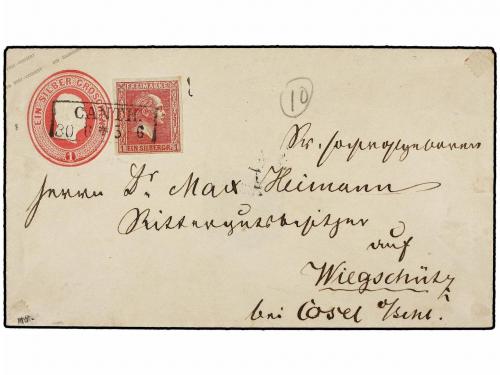 EIN SILBER GROSCHEN
1
FREIMARKE
1 EIN SILBERGR. 1
CANTH
30 6 * 5 6
10
Sr. Hochwohlgeboren
Herrn Dr. Max Heimann
Rittergutsbesitzer
auf
Wiegschütz
bei Cosel O/schl.